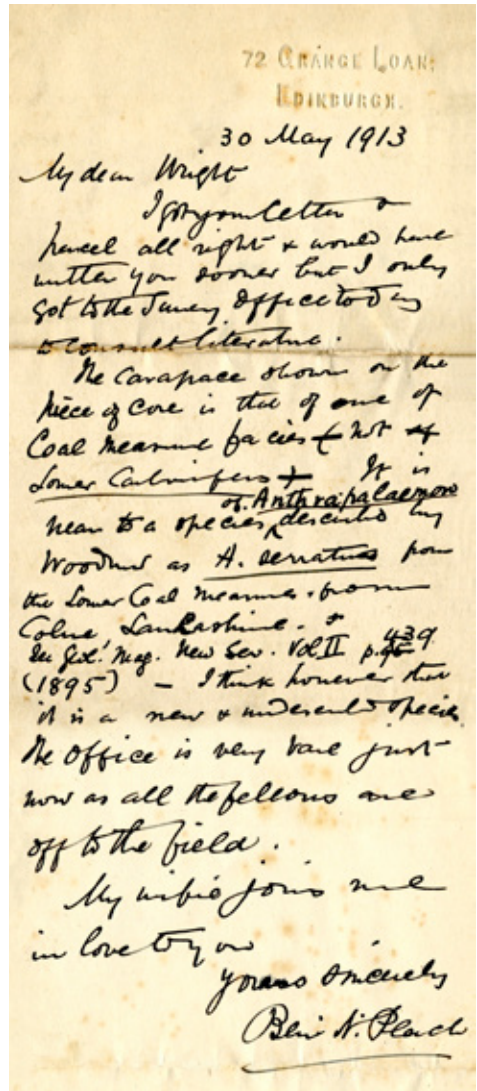 72 GRANGE LOAN,
EDINBURGH.
30 May 1913
My dear Wright
I got your letter &
parcel all right & would have
written you sooner but I only
got to the Survey Office today
to consult literature.
The Carapace shown on the
piece of core is that of one of
Coal Measure facies & not of
Lower Carbonifers It is
of Anthrapalaemon
near to a species described by
Woodward as A. serratus from
the Lower Coal Measures, from
Colne, Lancashire.
See Geol. Mag. New Ser. Vol II p. 439
(1895) — I think however that
it is a new & undescribed species
The Office is very bare just
now as all the fellows are
off to the field.
My wife joins me
in love to you
Yours sincerely
Ben N. Peach